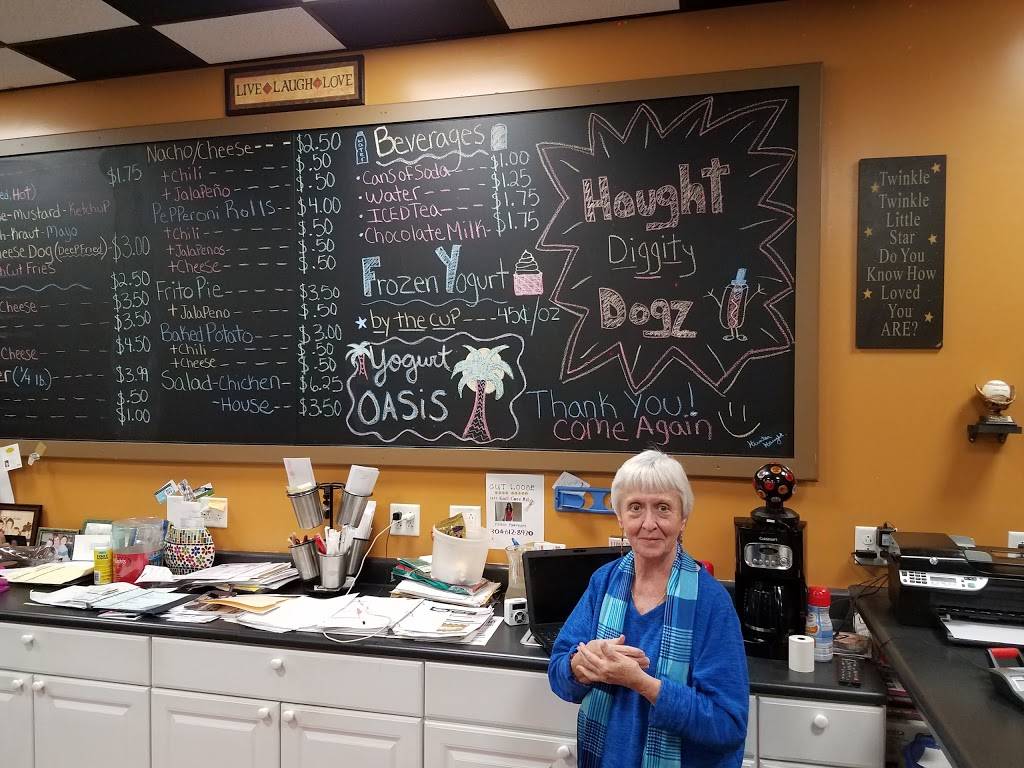 LIVE LAUGH LOVE
$1.75
Hot)
-Mustard-Ketchup
-Kraut-Mayo
Cheese Dog (Deep Fried) $3.00
Cut Fries
$2.50
Cheese $3.50
$3.50
$4.50
Cheese
(1/4 lb.) $3.99
.50
$1.00
Nacho/Cheese---- $2.50
+Chili .50
+Jalapeño .50
Pepperoni Rolls--- $4.00
+Chili .50
+Jalapeños .50
+Cheese .50
Frito Pie $3.50
+Jalapeno .50
Baked Potato $3.00
+Chili .50
+Cheese .50
Salad-Chichen- $6.25
-House--- $3.50
Beverages
•Cans of Soda $1.00
•Water $1.25
•ICED Tea $1.75
•Chocolate Milk- $1.75
Frozen Yogurt
by the cup----45¢/oz
Yogurt
OASIS
Hought
Diggity
Dogz
Thank You!
come Again
Twinkle
Twinkle
Little
Star
Do You
Know How
Loved
You
ARE?
GUT LOODE
304-612-8920
Cuisinart